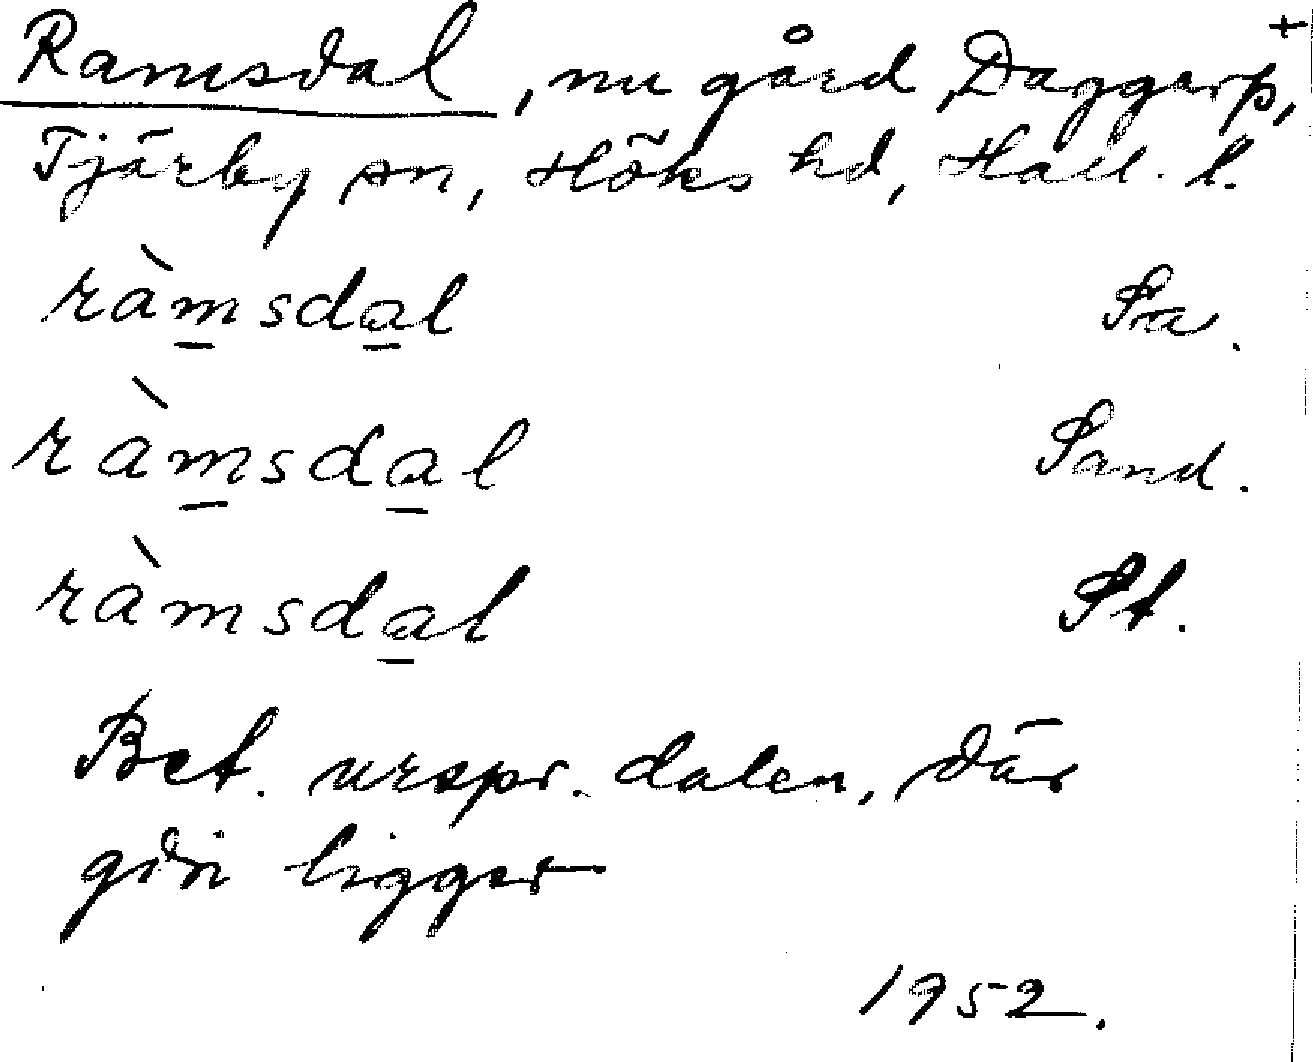 Ramsdal, nu gård, Daggarp, +
Tjärby sn, Höks hd, Hall. l.
ràmsdal Sa.
ràmsdal Sand.
ràmsdal St.
Bet. urspr. dalen, där
gdn ligger
1952.